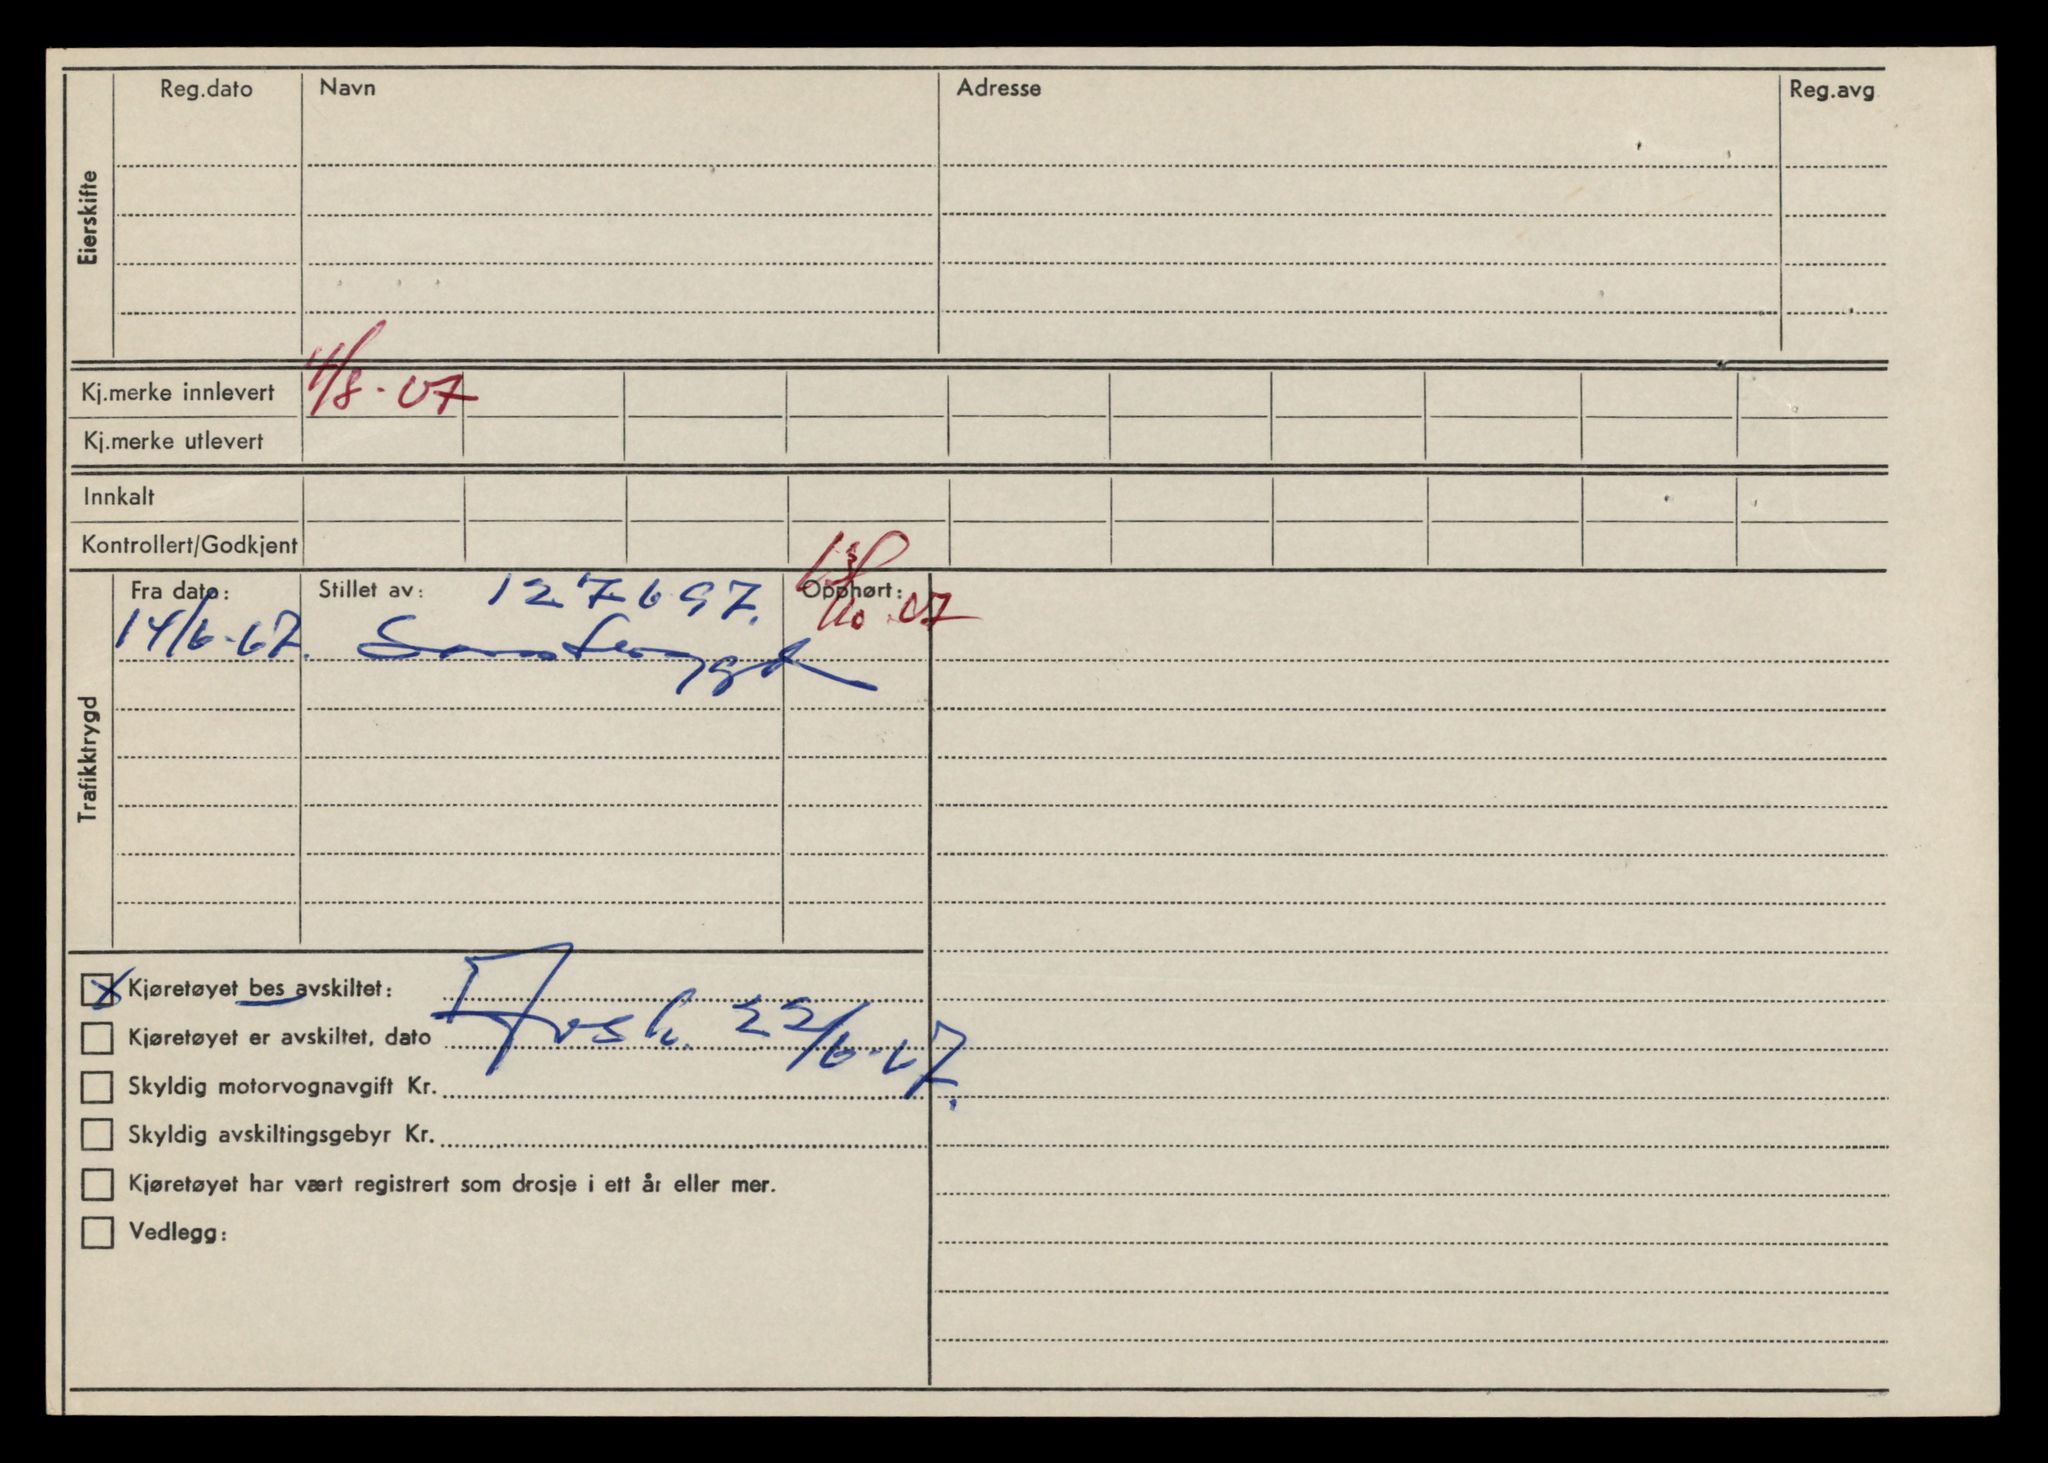 Reg.dato Navn Adresse Reg.avg
Eierskifte
Kj.merke innlevert 11/8-67
Kj.merke utlevert
Innkalt
Kontrollert/Godkjent
Trafikktrygd
Fra dato: Stillet av: 127697. Opphørt:
14/6-67. Samtrygd
Kjøretøyet bes avskiltet:
Kjøretøyet er avskiltet, dato 22/6-67.
Skyldig motorvognavgift Kr.
Skyldig avskiltingsgebyr Kr.
Kjøretøyet har vært registrert som drosje i ett år eller mer.
Vedlegg: